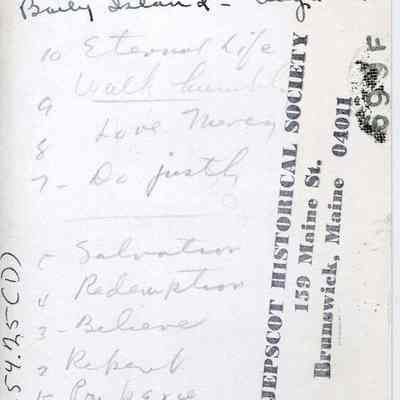 Baily Island -
10 Eternal Life
9 Walk humbl
8 Love Mercy
7 - Do justly
5 Salvation
4 Redemption
3 - Believe
2 Repent
1
JEPSCOT HISTORICAL SOCIETY
159 Maine St.
Brunswick, Maine 04011
699 F
54.125(D)